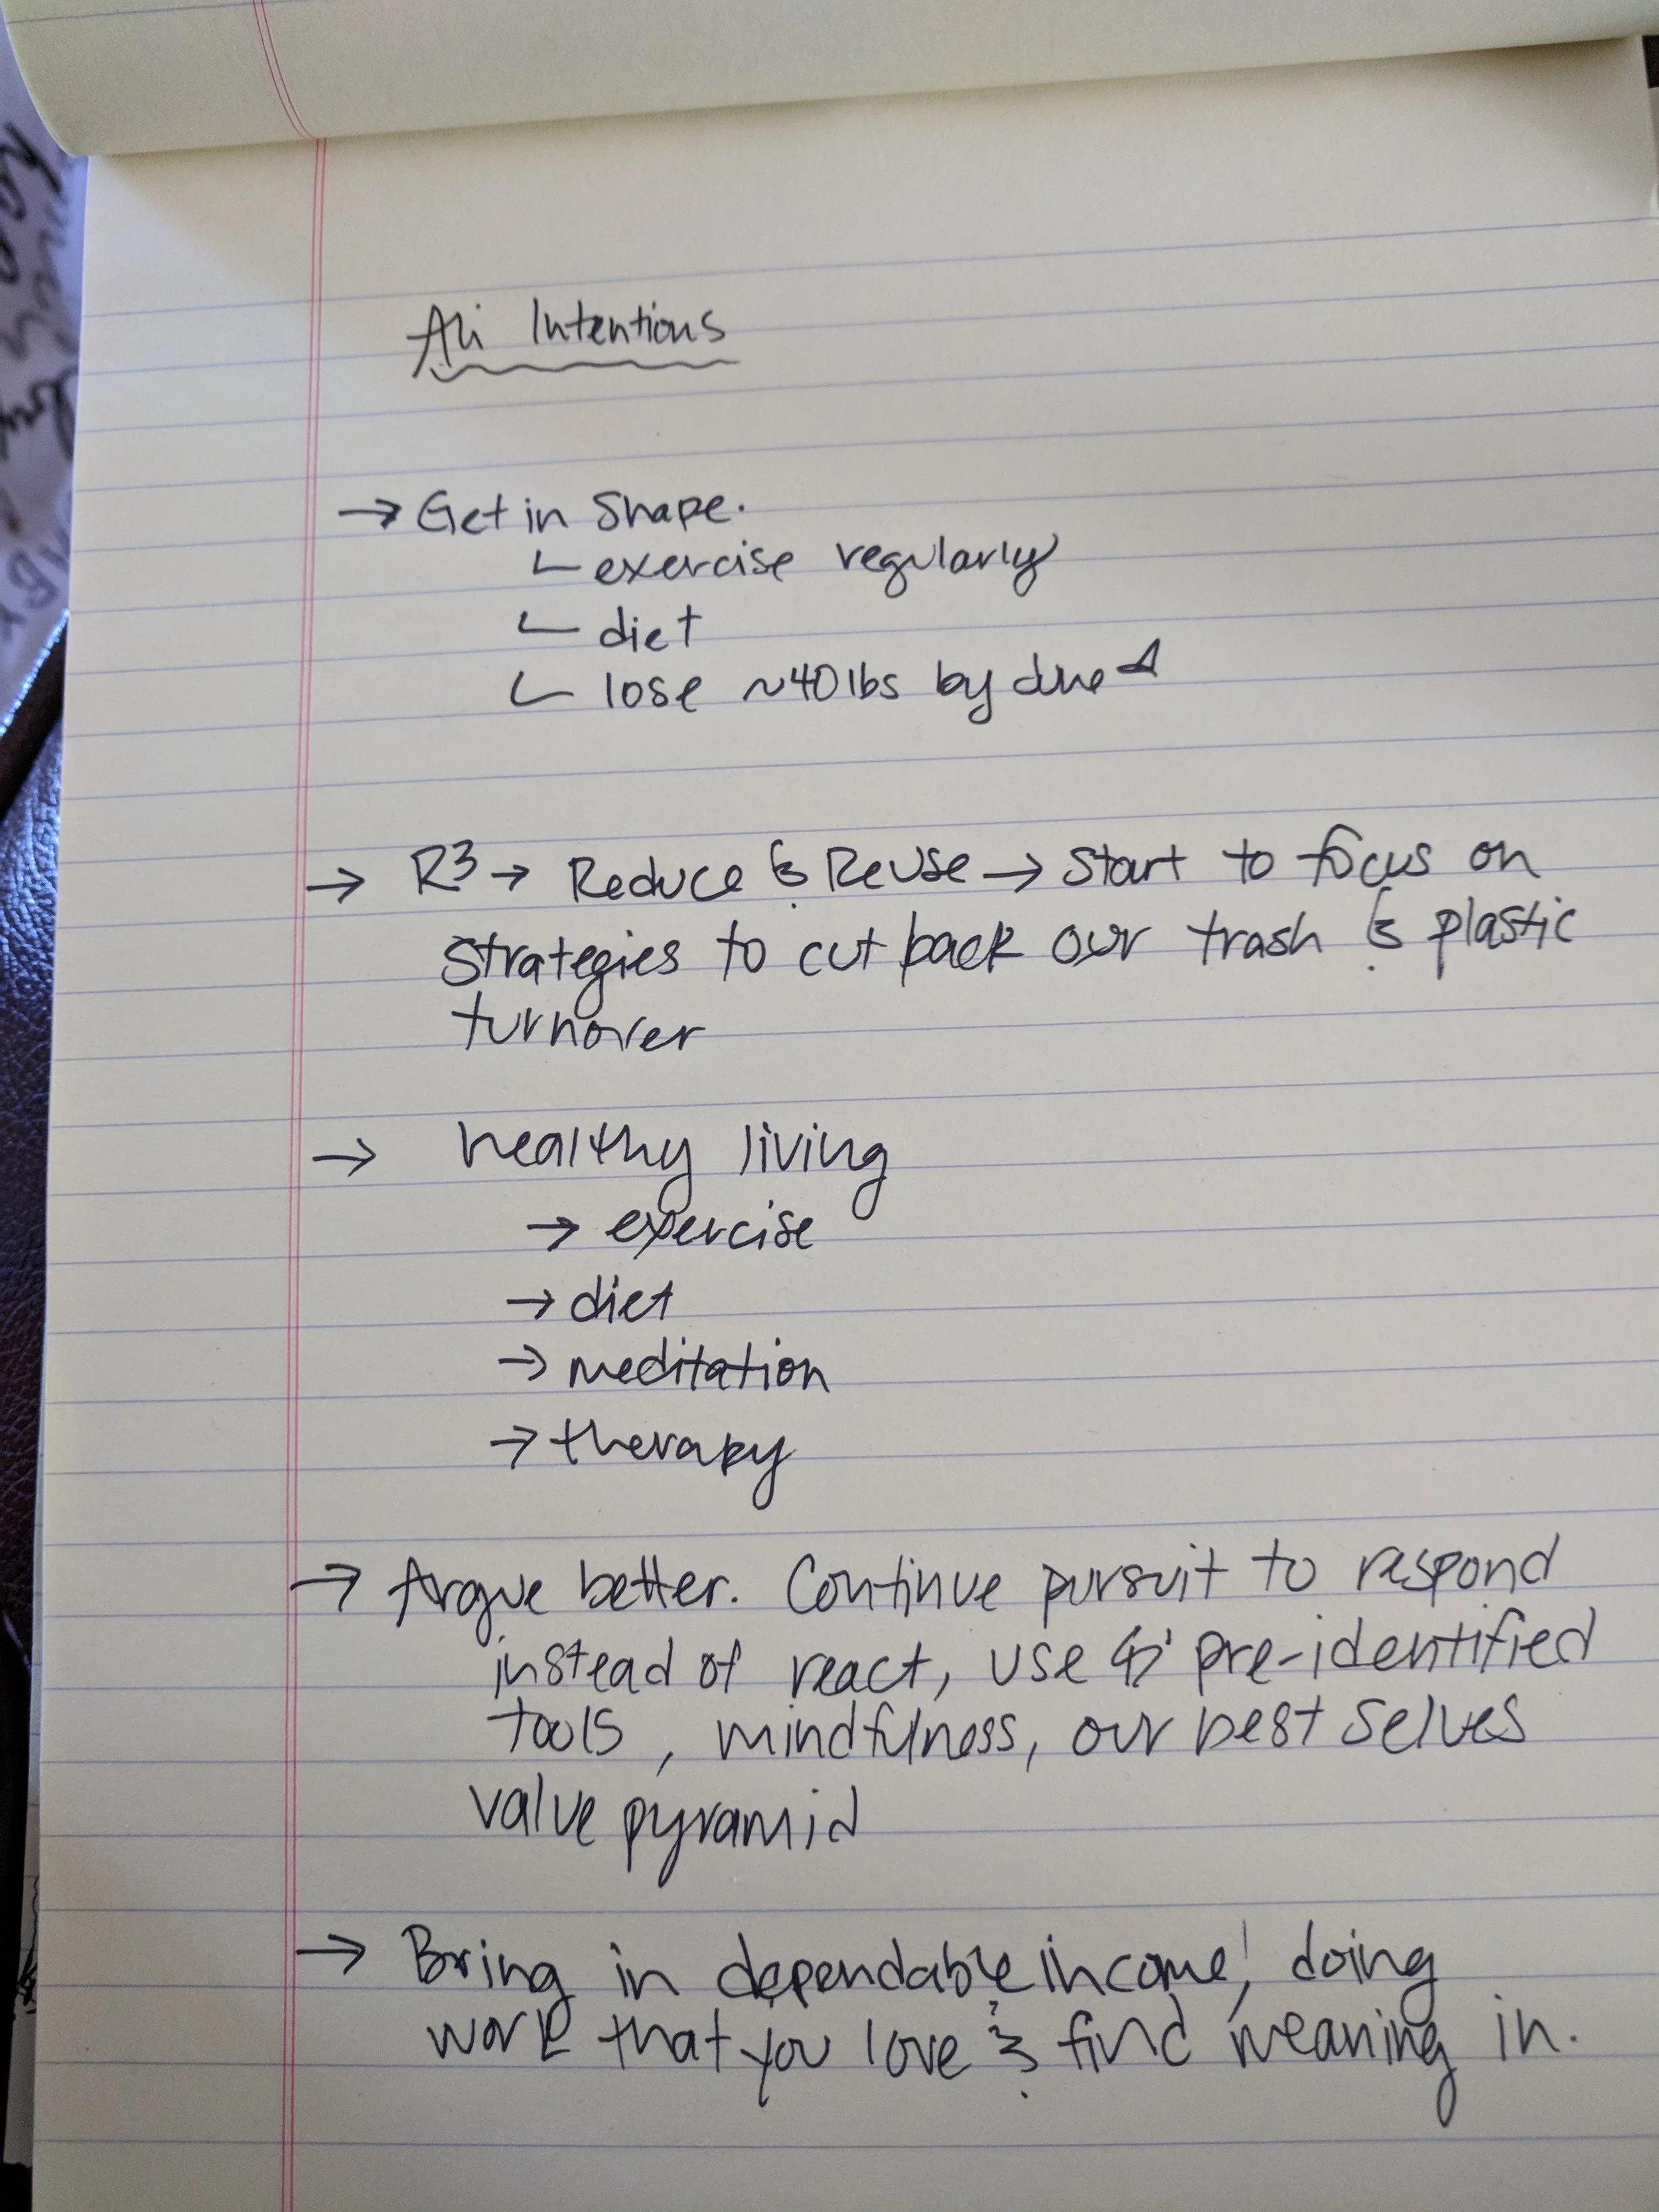 Ali Intentions
→ Get in Shape.
exercise regularly
diet
lose ~40lbs by
→ R3 → Reduce & Reuse → Start to focus on
strategies to cut back our trash & plastic
turnover
→ healthy living
→ exercise
→ diet
→ meditation
→ therapy
→ Argue better. Continue pursuit to respond
instead of react, use pre-identified
tools, mindfulness, our best selves
value pyramid
→ Bring in dependable income! doing
work that you love & find meaning in.